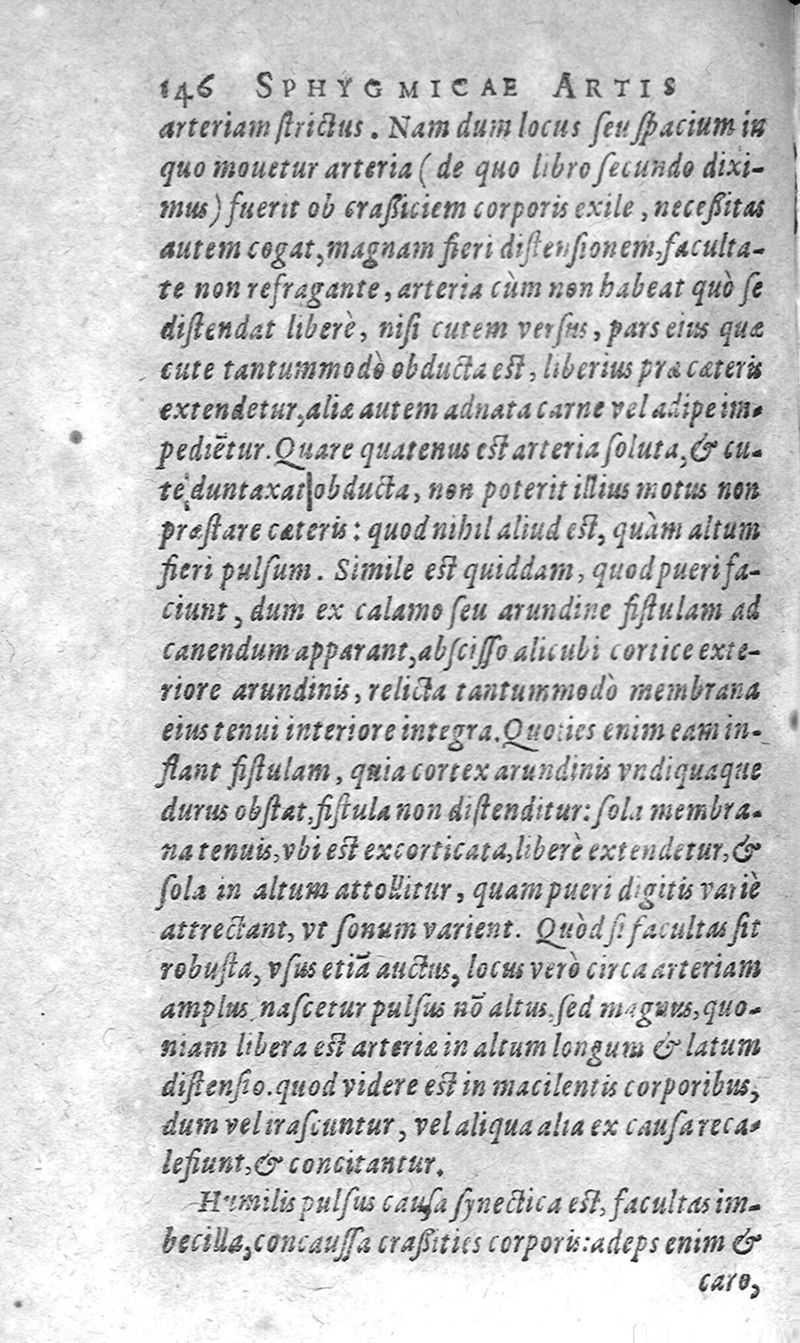 146 SPHYGMICAE ARTIS
arteriam ſtrictus. Nam dum locus ſeu ſpacium in
quo mouetur arteria (de quo libro ſecundo dixi-
mus) fuerit ob craſſiciem corporis exile, neceſſitas
autem cogat, magnam fieri diſtenſionem, faculta-
te non refragante, arteria cùm non habeat quò ſe
diſtendat liberè, niſi cutem verſus, pars eius quæ
cute tantummodò obducta eſt, liberius præ cæteris
extendetur, aliæ autem adnata carne vel adipe im-
pediētur. Quare quatenus eſt arteria ſoluta, & cu-
te duntaxat obducta, non poterit illius motus non
præſtare cæteris: quod nihil aliud eſt, quàm altum
fieri pulſum. Simile eſt quiddam, quod pueri fa-
ciunt, dum ex calamo ſeu arundine fiſtulam ad
canendum apparant, abſciſſo alicubi cortice exte-
riore arundinis, relicta tantummodò membrana
eius tenui interiore integra. Quoties enim eam in-
flant fiſtulam, quia cortex arundinis vndiquaque
durus obſtat, fiſtula non diſtenditur: ſola membra-
na tenuis, vbi eſt excorticata, liberè extendetur, &
ſola in altum attollitur, quam pueri digitis variè
attrectant, vt ſonum varient. Quòd ſi facultas ſit
robuſta, vſus etiā auctus, locus verò circa arteriam
amplus naſcetur pulſus nō altus, ſed magnus, quo-
niam libera eſt arteriæ in altum longum & latum
diſtenſio. quod videre eſt in macilentis corporibus,
dum vel iraſcuntur, vel aliqua alia ex cauſa reca-
lefiunt, & concitantur.
Humilis pulſus cauſa ſynectica eſt, facultas im-
becilla, concauſſa craſſities corporis: adeps enim &
caro,